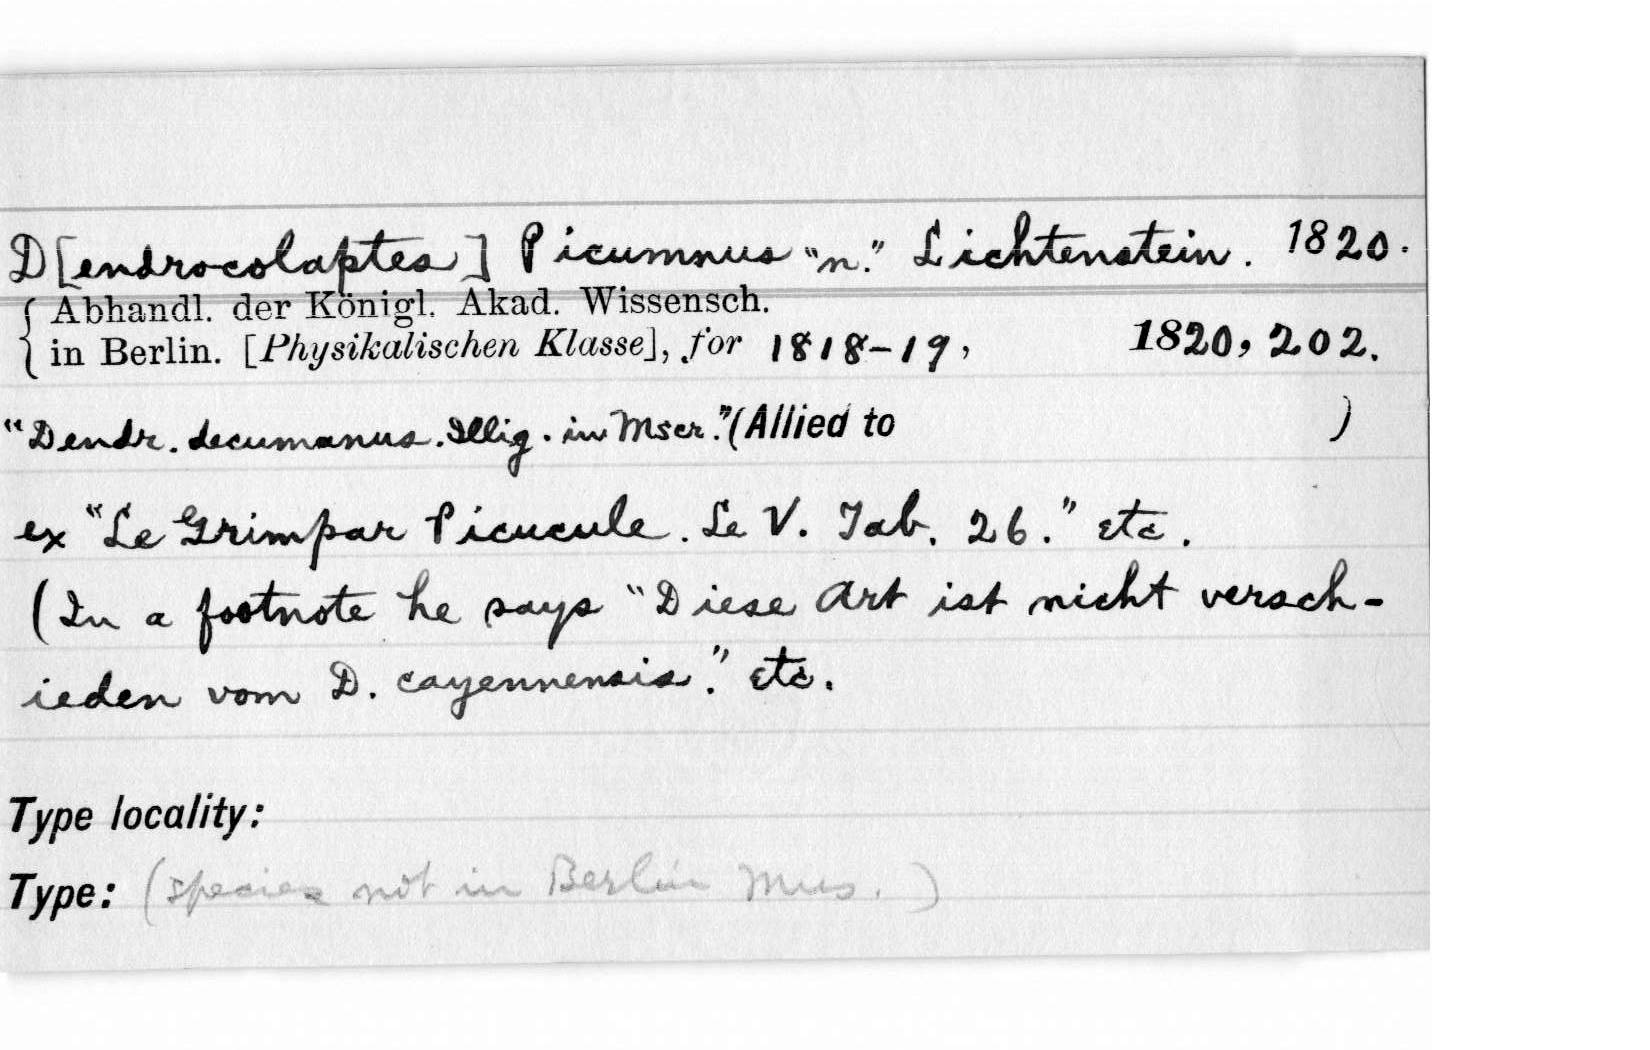 D[endrocolaptes] Picumnus "n." Lichtenstein. 1820.
Abhandl. der Königl. Akad. Wissensch.
in Berlin. [Physikalischen Klasse], for 1818-19, 1820, 202.
"Dendr. decumanus. Illig. in Mscr." (Allied to )
ex "Le Grimpar Picucule. Le V. Tab. 26." etc.
(In a footnote he says "Diese Art ist nicht versch-
ieden vom D. cayennensis." etc.
Type locality:
Type: (species not in Berlin Mus. )